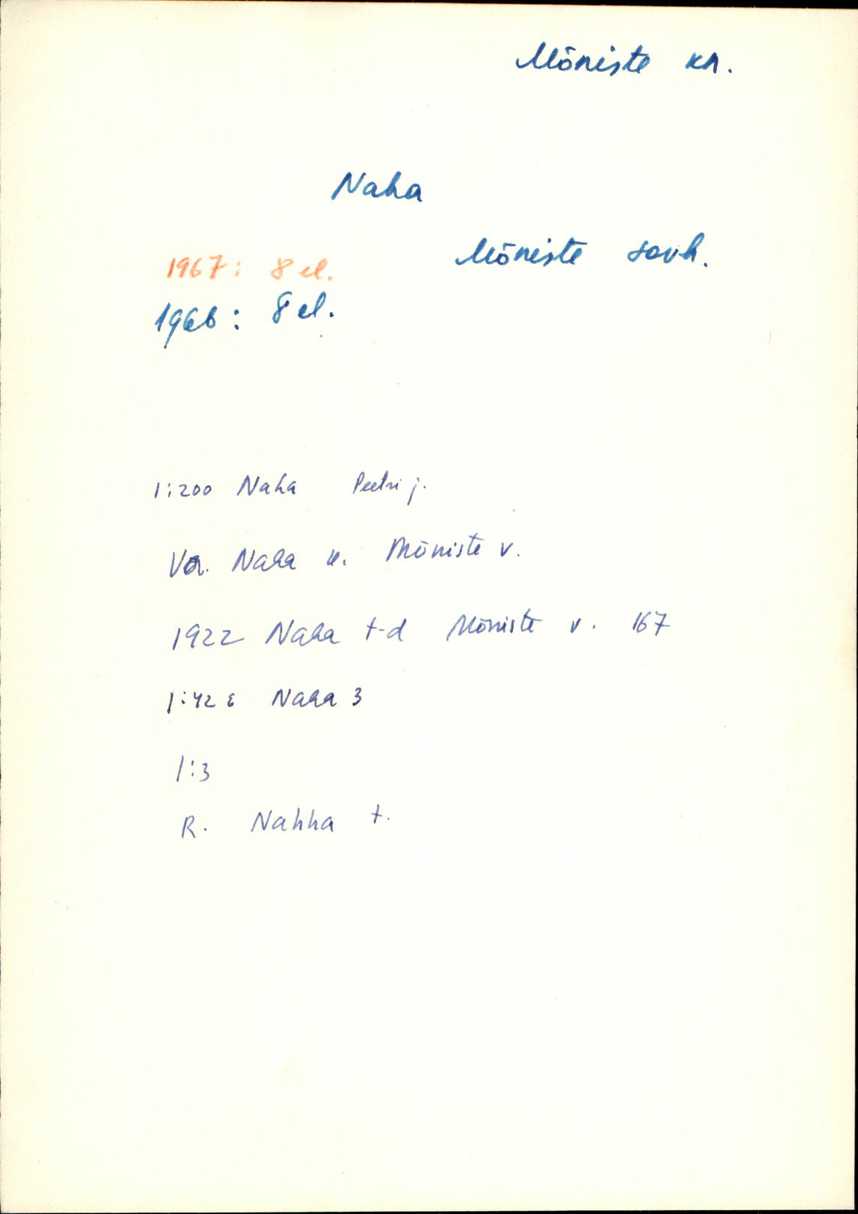 Mõniste kn.
Naha
Mõniste sovh.
1967: 8 el.
1966: 8 el.
1:200 Naha Peetri j.
Naha k. Mõniste v.
1922 Naha t-d Mõniste v. 167
1:42 Naha 3
1:3
R. Nahha t.